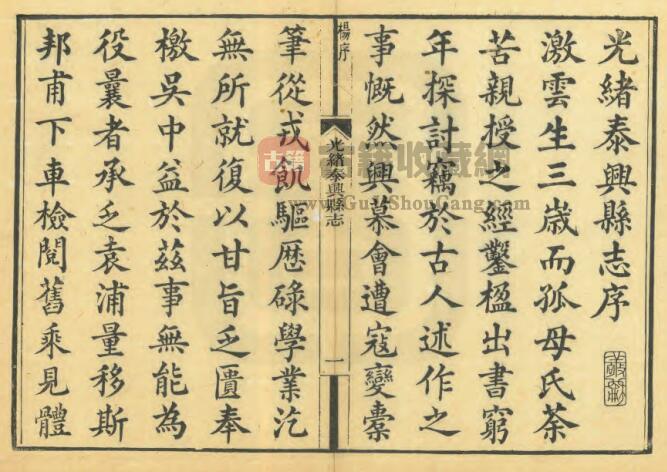 光緒泰興縣志序
激雲生三歲而孤母氏茶
苦親授之經鑿楹出書窮
年探討竊於古人述作之
事慨然興慕會遭寇變橐
楊序
光緒泰興縣志
一
筆從戎飢驅歷碌學業汔
無所就復以甘旨乏匱奉
檄吳中益於茲事無能為
役曩者承乏袁浦量移斯
邦甫下車檢閱舊乘見體
古籍
古籍收藏網
www.GuJiShouCang.com